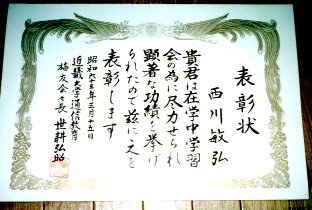 表彰状
西川敏弘
貴君は在学中学習
会の為に尽力せられ
顕著な功績を挙げ
られたので茲に之を
表彰します
昭和六十三年三月十五日
近畿大学通信教育
梅友会々長 世耕弘昭